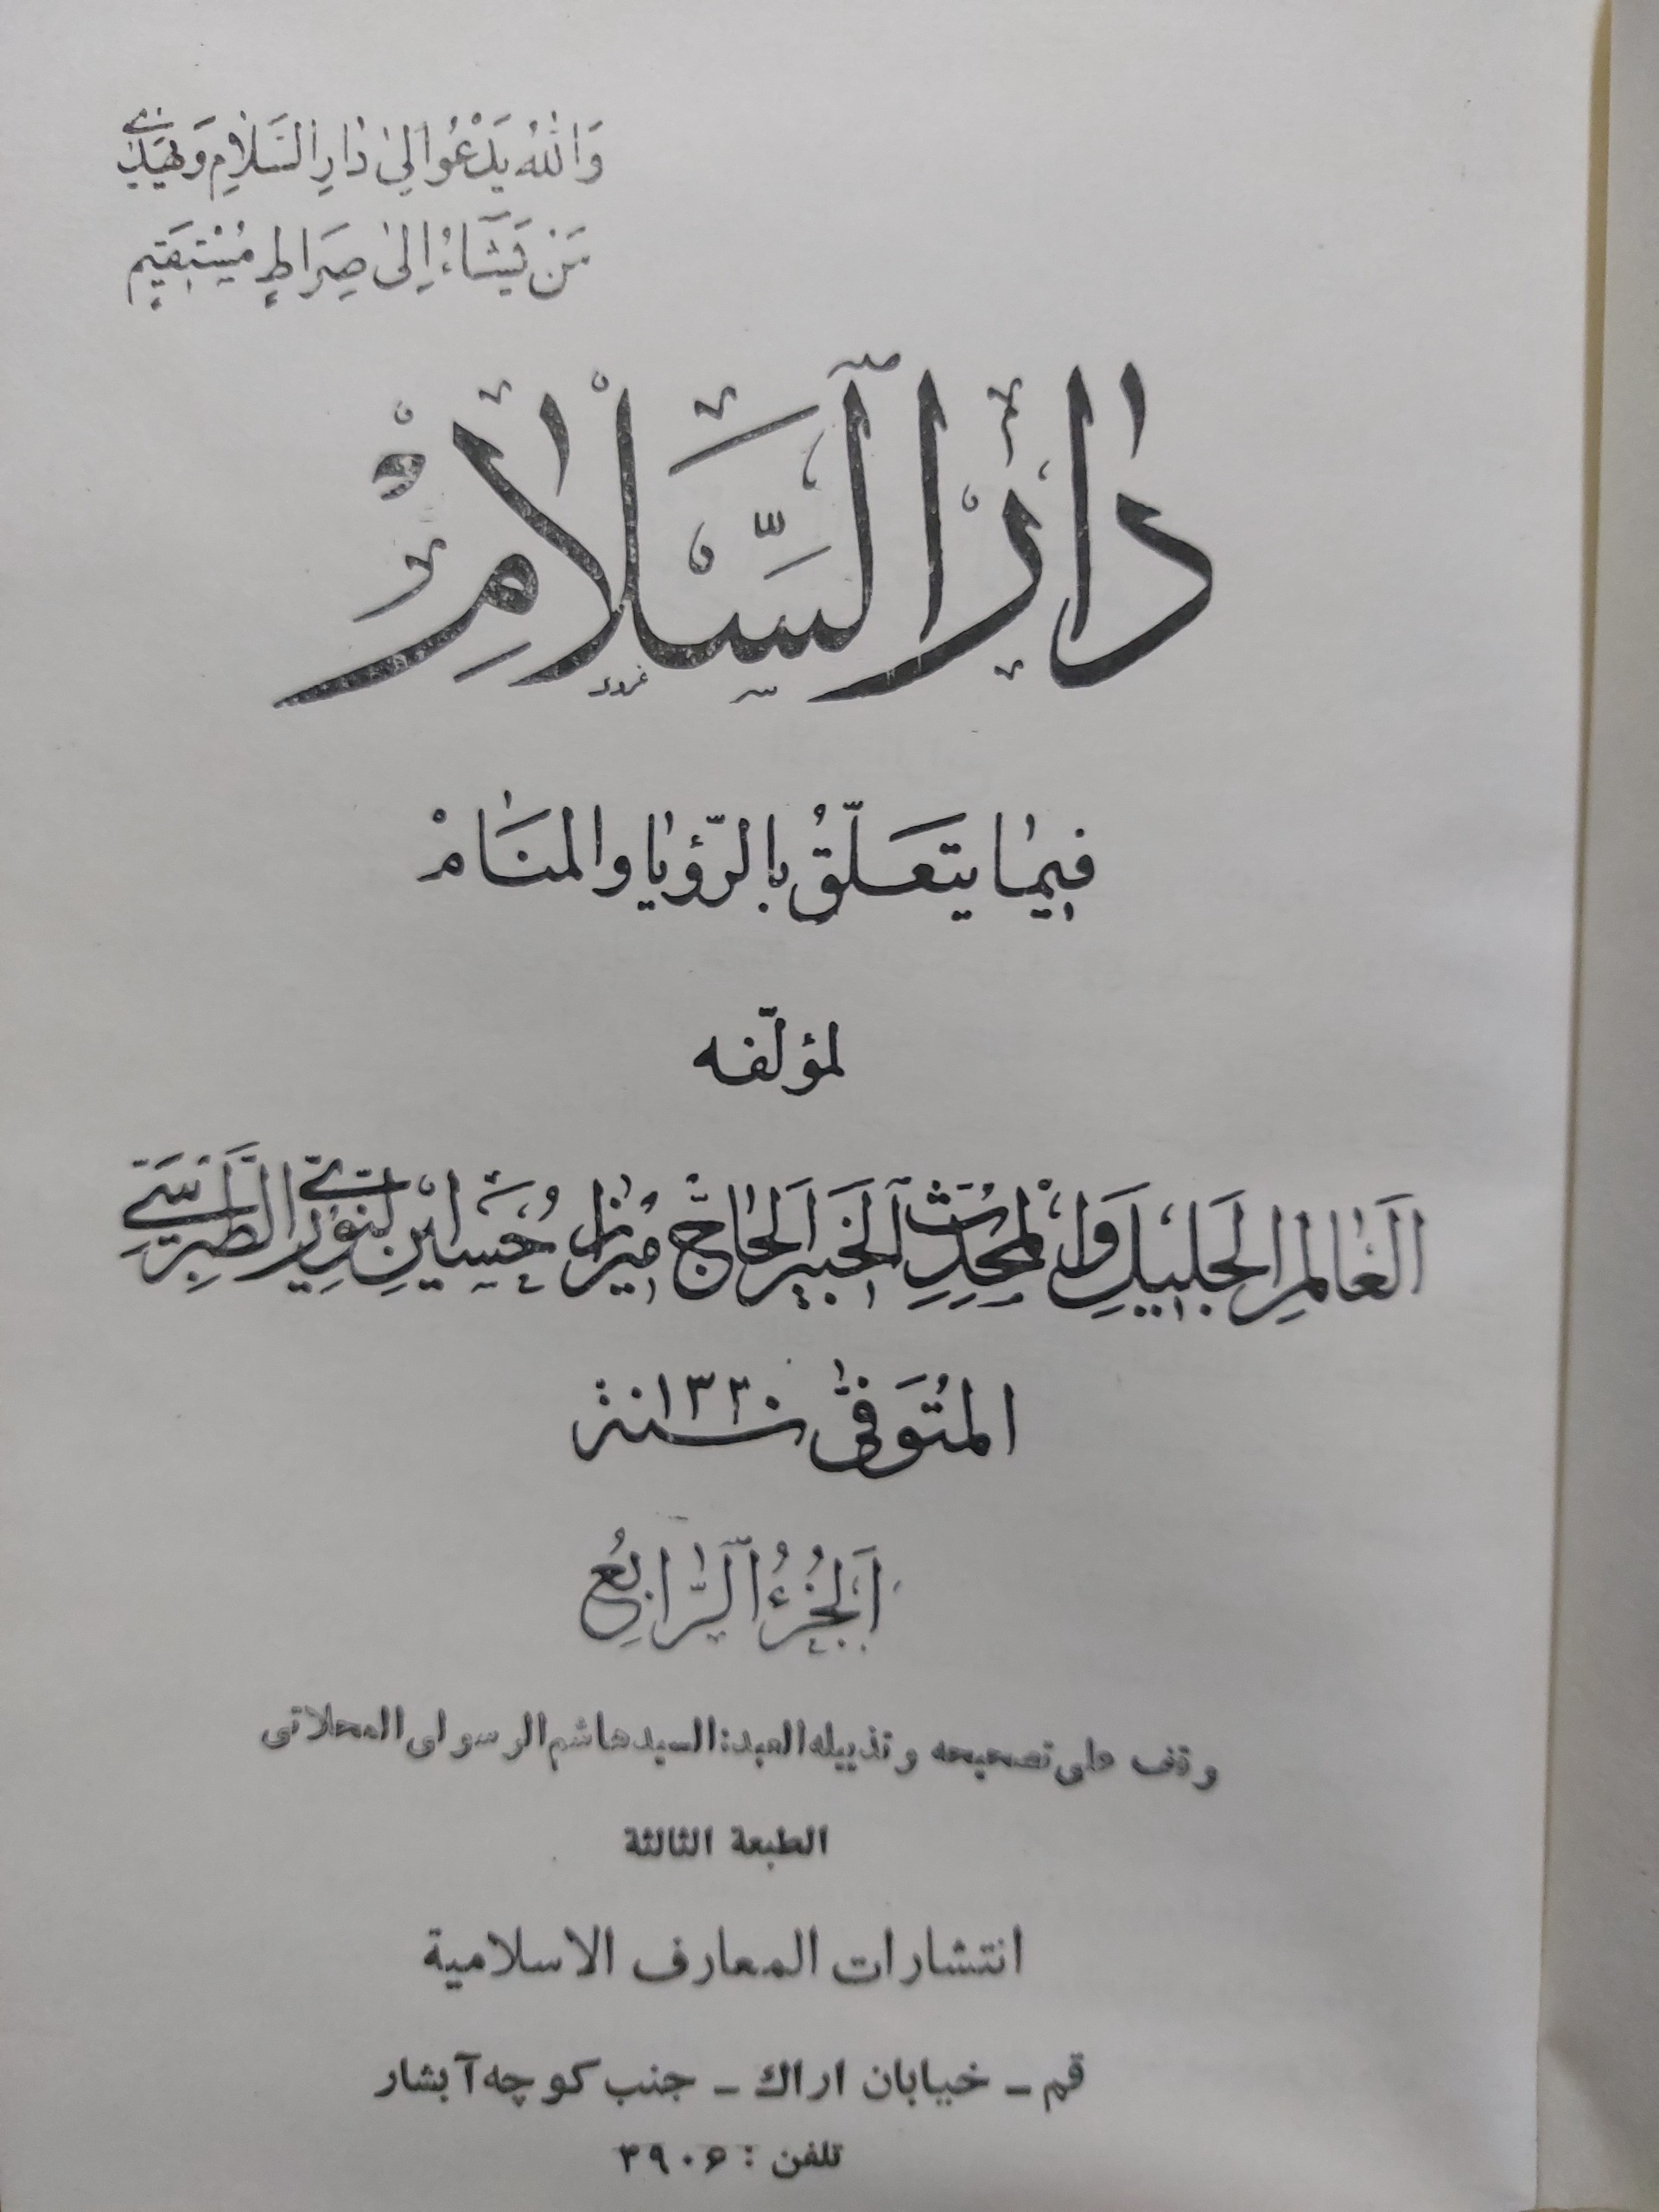 وَاللّٰهُ يَدْعُوا إِلىٰ دٰارِ السَّلاٰمِ وَيَهْدِي
مَن يَشَاءُ إِلىٰ صِرَاطٍ مُسْتَقِيمٍ
دٰارُ السَّلاٰمْ
فيمٰا يتَعَلّقُ بالرّؤيٰا والمنَامْ
لمؤلّفه
العٰالِم الجَليلِ وَالْمُحَدِّثِ الخَبير الحٰاجّ ميرزا حُسَين النّوري الطَّبَرسي
المتُوَفّى سنة ١٣٢٠
اَلجُزءُ الرّابعُ
وقف على تصحيحه وتذييله العبد: السيد هاشم الرسولى المحلاتى
الطبعة الثالثة
انتشارات المعارف الاسلامية
قم ـ خيابان اراك ـ جنب كوچه آبشار
تلفن : ۳۹۰۶